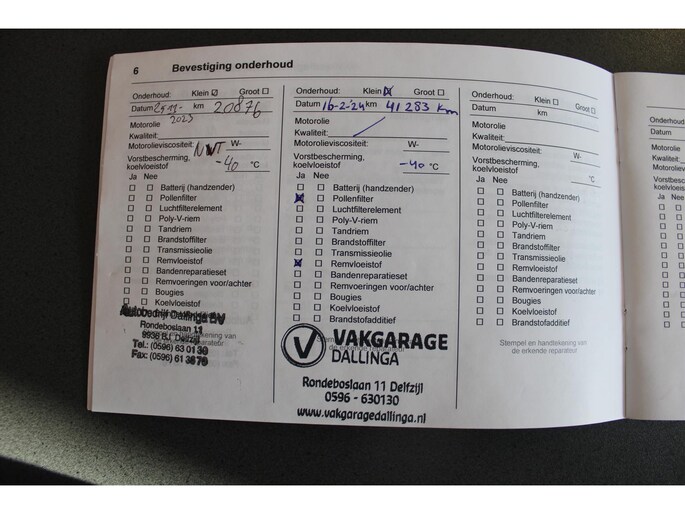 6 Bevestiging onderhoud
Onderhoud: Klein ☑ Groot ☐
Datum 25 11- km 20876
2023
Motorolie
Kwaliteit:
Motorolieviscositeit: W-
NVT
Vorstbescherming,
koelvloeistof -40 °C
Ja Nee
☐ ☐ Batterij (handzender)
☐ ☐ Pollenfilter
☐ ☐ Luchtfilterelement
☐ ☐ Poly-V-riem
☐ ☐ Tandriem
☐ ☐ Brandstoffilter
☐ ☐ Transmissieolie
☐ ☐ Remvloeistof
☐ ☐ Bandenreparatieset
☐ ☐ Remvoeringen voor/achter
☐ ☐ Bougies
☐ ☐ Koelvloeistof
Autobedrijf Dallinga BV
Rondeboslaan 11
Delfzijl
Tel.: (0596) 63 01 30
Fax: (0596) 61 3879
Onderhoud: Klein ☒ Groot ☐
Datum 16-2-'24 km 41 283 km
Motorolie
Kwaliteit:
Motorolieviscositeit: W-
Vorstbescherming,
koelvloeistof -40 °C
Ja Nee
☐ ☐ Batterij (handzender)
☒ ☐ Pollenfilter
☐ ☐ Luchtfilterelement
☐ ☐ Poly-V-riem
☐ ☐ Tandriem
☐ ☐ Brandstoffilter
☐ ☐ Transmissieolie
☒ ☐ Remvloeistof
☐ ☐ Bandenreparatieset
☐ ☐ Remvoeringen voor/achter
☐ ☐ Bougies
☐ ☐ Koelvloeistof
☐ ☐ Brandstofadditief
Stempel en handtekening van
V VAKGARAGE
DALLINGA
Rondeboslaan 11 Delfzijl
0596 - 630130
www.vakgaragedallinga.nl
Onderhoud: Klein ☐ Groot ☐
Datum km
Motorolie
Kwaliteit:
Motorolieviscositeit: W-
Vorstbescherming,
koelvloeistof °C
Ja Nee
☐ ☐ Batterij (handzender)
☐ ☐ Pollenfilter
☐ ☐ Luchtfilterelement
☐ ☐ Poly-V-riem
☐ ☐ Tandriem
☐ ☐ Brandstoffilter
☐ ☐ Transmissieolie
☐ ☐ Remvloeistof
☐ ☐ Bandenreparatieset
☐ ☐ Remvoeringen voor/achter
☐ ☐ Bougies
☐ ☐ Koelvloeistof
☐ ☐ Brandstofadditief
Stempel en handtekening van
de erkende reparateur
Onderhoud:
Datum
Motorolie
Kwaliteit:
Motorolieviscos
Vorstbescherm
koelvloeistof
Ja Nee